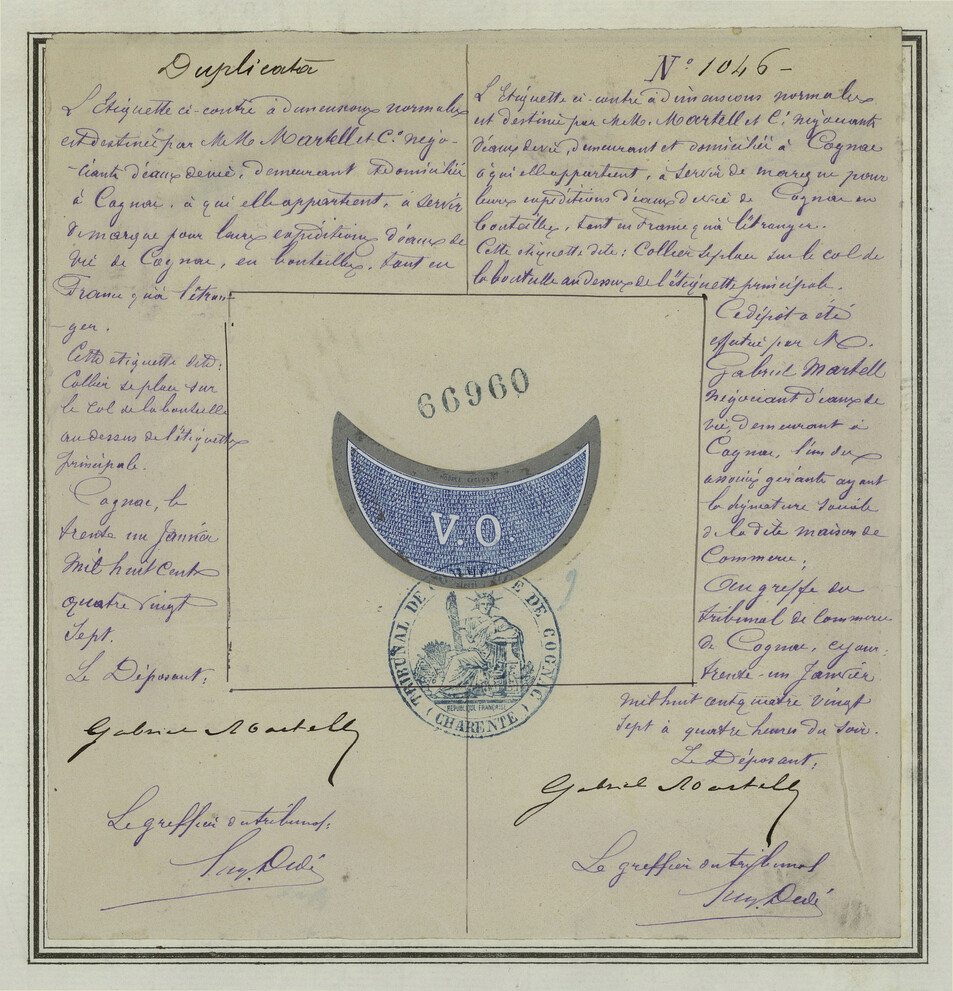 Duplicata
L'Etiquette ci-contre à dimensions normales
est destinée par MM. Martell et Cº. négo-
ciants d'eaux de vie, demeurant et domiciliés
à Cognac, à qui elle appartient, à servir
de marque pour leurs expéditions d'eaux de
vie de Cognac, en bouteilles, tant en
France qu'à l'étran-
ger.
Cette étiquette dite:
Collier se place sur
le col de la bouteille
au dessus de l'étiquette
principale.
Cognac, le
trente un Janvier
Mil huit cent
quatre vingt
Sept.
Le Déposant:
Gabriel Martell
Le greffier du tribunal:
Nº 1046 -
L'Etiquette ci-contre à dimensions normales
est destinée par MM. Martell et Cº. négociants
d'eaux de vie, demeurant et domiciliés à Cognac
à qui elle appartient, à servir de marque pour
leurs expéditions d'eaux de vie de Cognac en
bouteilles, tant en France qu'à l'étranger.
Cette étiquette dite: Collier se place sur le col de
la bouteille au dessus de l'étiquette principale.
Ce dépôt a été
effectué par M.
Gabriel Martell
négociant d'eaux de
vie, demeurant à
Cognac, l'un des
associés gérants ayant
la signature sociale
de la dite maison de
Commerce;
Au greffe du
tribunal de commerce
de Cognac, ce jour:
trente-un Janvier
mil huit cent quatre vingt
Sept à quatre heures du soir.
Le Déposant:
Gabriel Martell
Le greffier du tribunal
66960
V.O.
TRIBUNAL DE COMMERCE DE COGNAC
REPUBLIQUE FRANÇAISE
(CHARENTE)